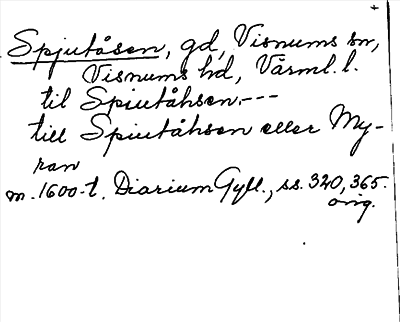 Spjutåsen, gd, Visnums sn,
Visnums hd, Värml. l.
til Spiutåhsen.---
till Spiutåhsen eller My-
ran
m. 1600-t. Diarium Gyll., ss. 320, 365.
orig.